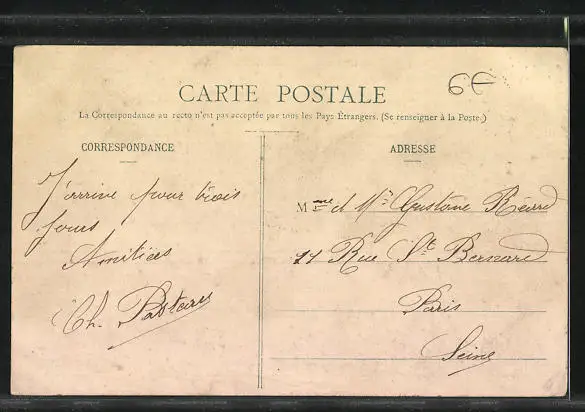 6€
CARTE POSTALE
La Correspondance au recto n'est pas acceptée par tous les Pays Étrangers. (Se renseigner à la Poste.)
CORRESPONDANCE
J'arrive pour trois
jours
Amitiés
Ch.
ADRESSE
Mme et Mr Gustave
Rue St Bernard
Paris
Seine